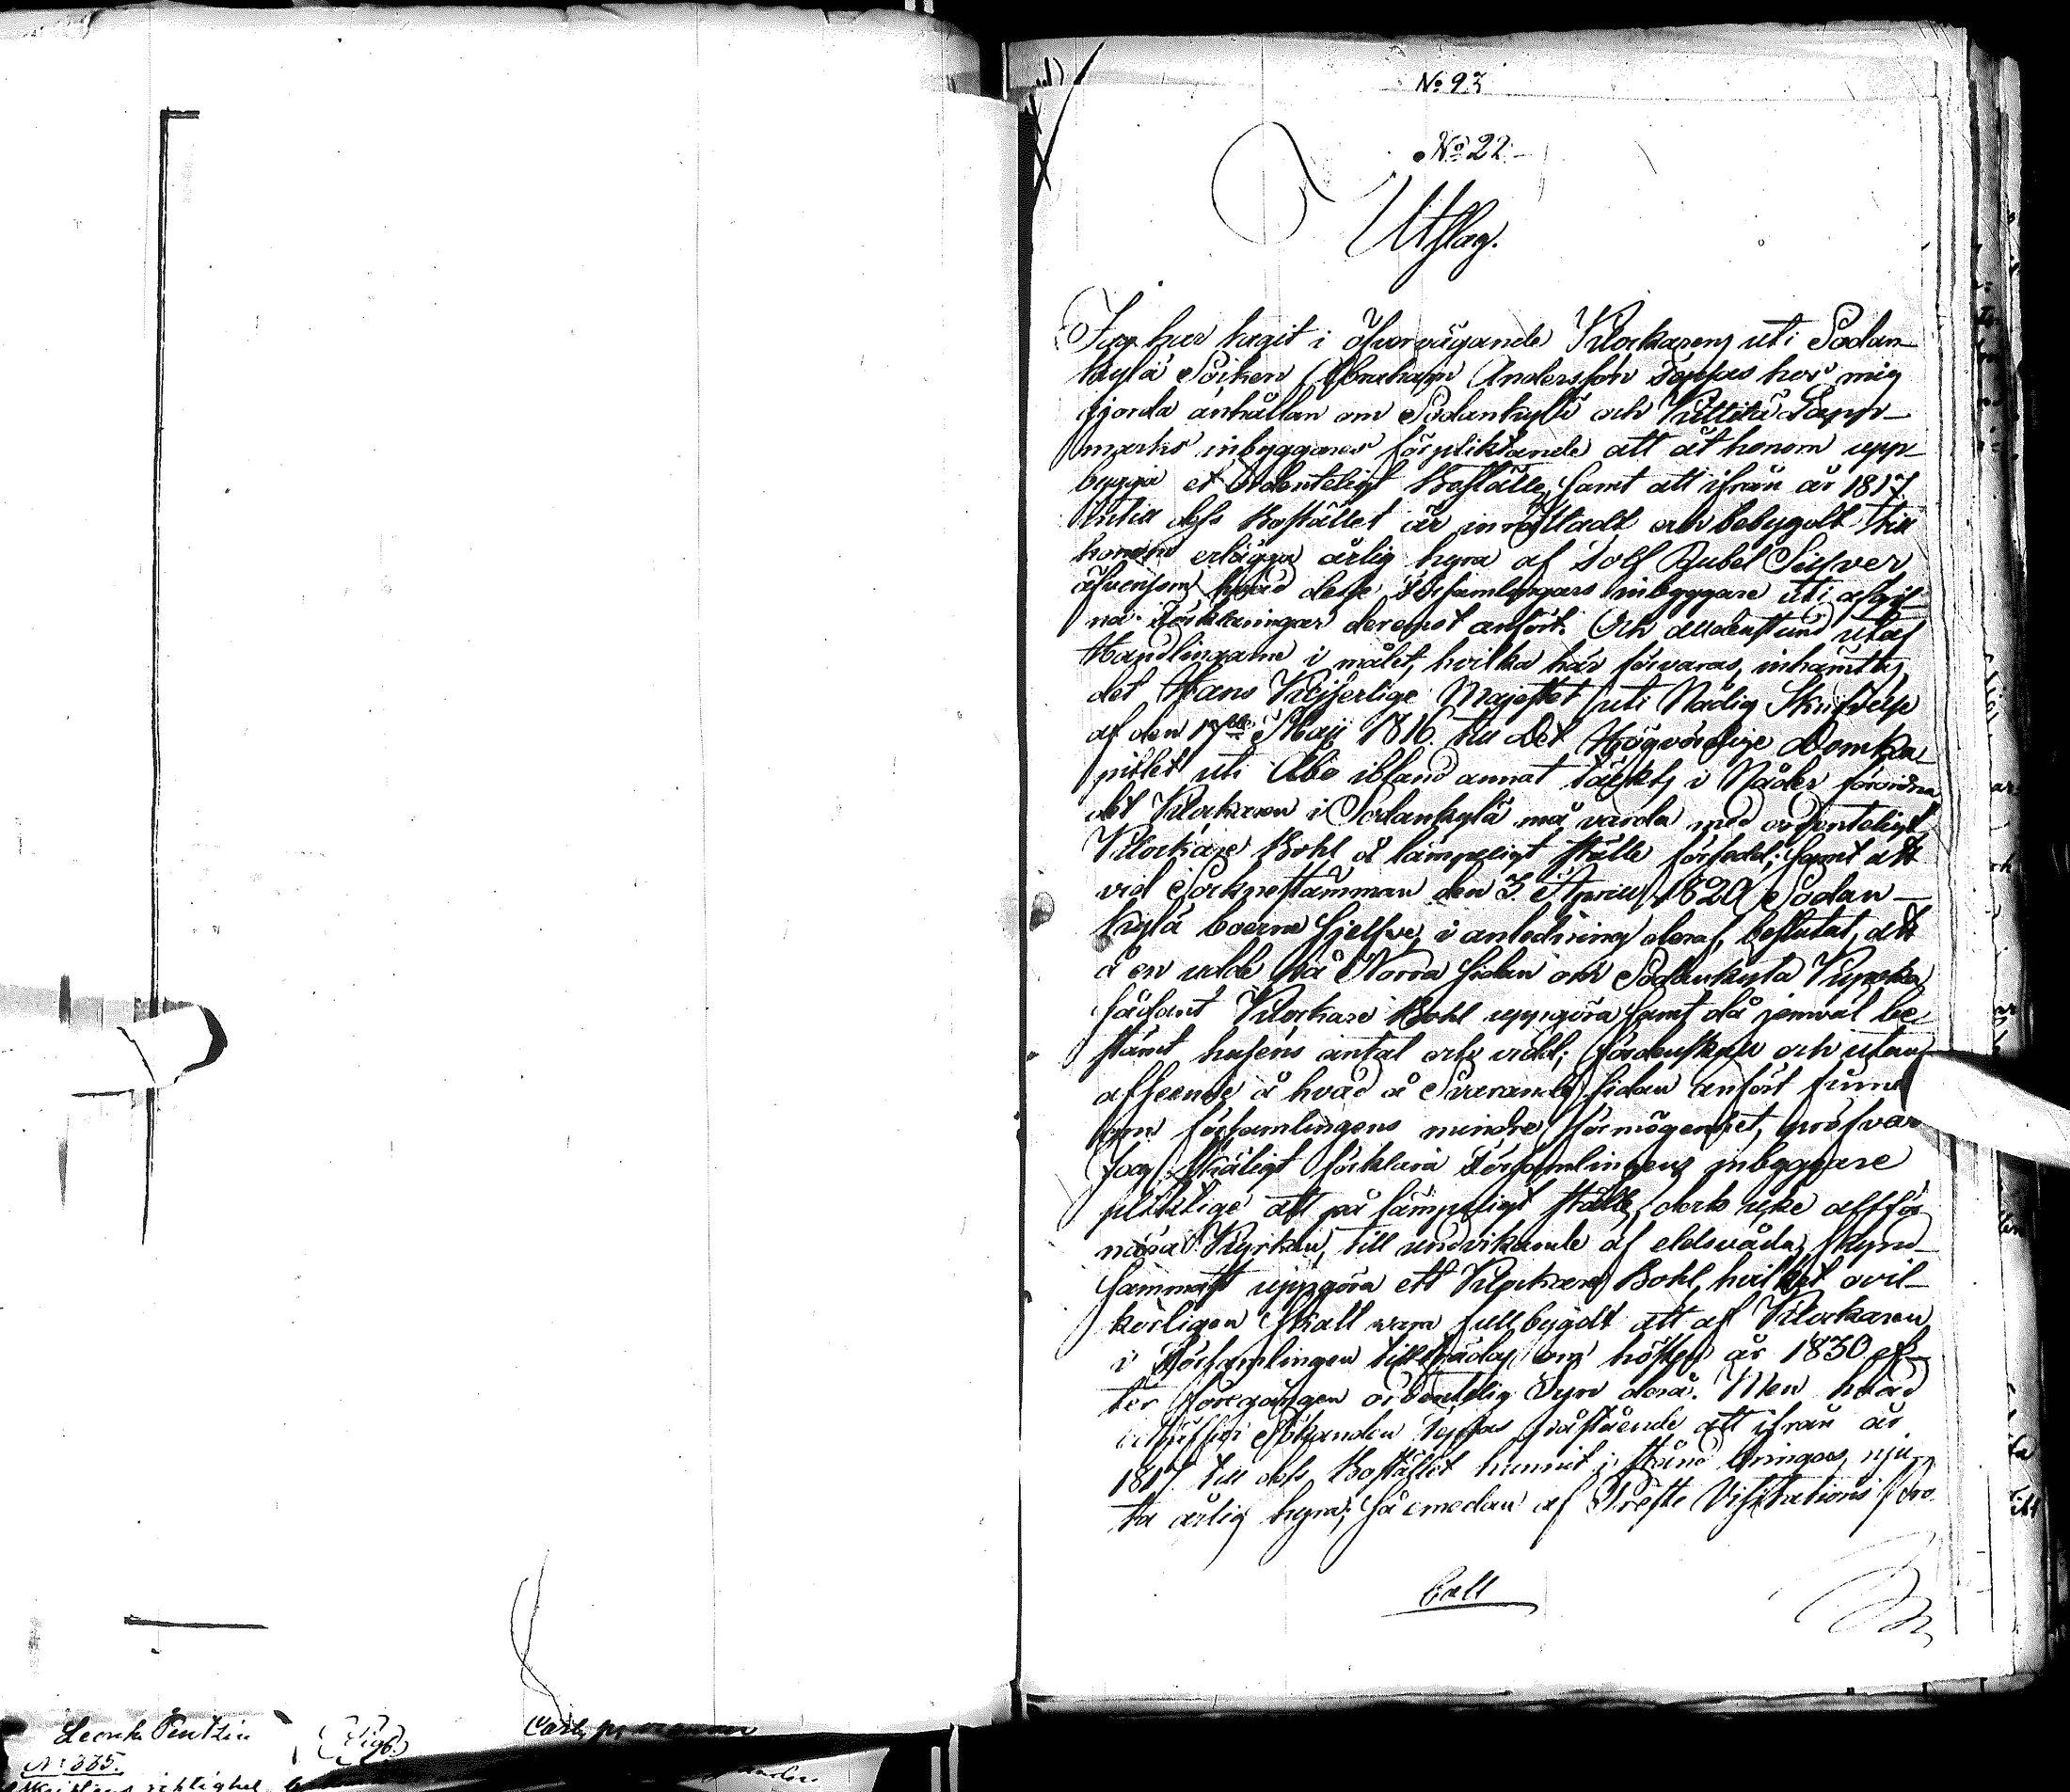 No 93
No 22.
Utslag.
Jag har tagit i öfvervägande Klockarens uti Sodan-
kylä Socken Abraham Andersson Toppas hos mig
gjorda anhållan om Sodankylä och Kittilä Lapp-
marks inbyggares förpliktande att åt honom upp-
bygga et Ordenteligt Boställe, samt att ifrån år 1817
intill dess Bostället är inrättadt och bebygdt till
honom erlägga årlig hyra af Tolf Rubel Silfver,
äfvensom hvad desse Församlingars inbyggare uti afgif-
na Förklaringar deremot anfört. Och alldenstund utaf
Handlingarne i målet, hvilka här förvaras, inhämtas,
det Hans Kejserlige Majestet uti Nådig Skrifvelse
af den 17de Maji 1816 till Det Högvördige Domka-
pitlet uti Åbo ibland annat täckts i Nåder förordna
det Klockaren i Sodankylä må varda med ordenteligt
Klockare Bohl å lämpeligt ställe försedd; samt att
vid Socknestämman den 3. Aprill 1820 Sodan-
kylä boerne sjelfve, i anledning deraf, beslutat, att
å en udde på Norra sidan om Sodankylä Kyrka
sådant Klockare Bohl uppgöra samt då jemväl be-
stämt husens antal och vidd; fördenskull och utan
afseende å hvad å Svarande sidan anfört
om församlingens mindre förmögenhet, pröfvar
Jag skäligt förklara Församlingens inbyggare
pliktige att på lämpeligt ställe, dock icke allt för
nära Kyrkan, till undvikande af eldsvåda, skynd-
sammast uppgöra ett Klockare Bohl, hvilket ovil-
korligen skall vara fullbygdt att af Klockaren
i Församlingen tillträdas om hösten år 1830 ef-
ter föregången ordentelig Syn derå. Men hvad
Sökanden Toppas påstående att ifrån år
1817 till dess Bostället hunnit i stånd bringas, nju-
ta årlig hyra; så emedan af Proste Visitations Pro-
Coll
Leonh
No 335.
(Sigb.)